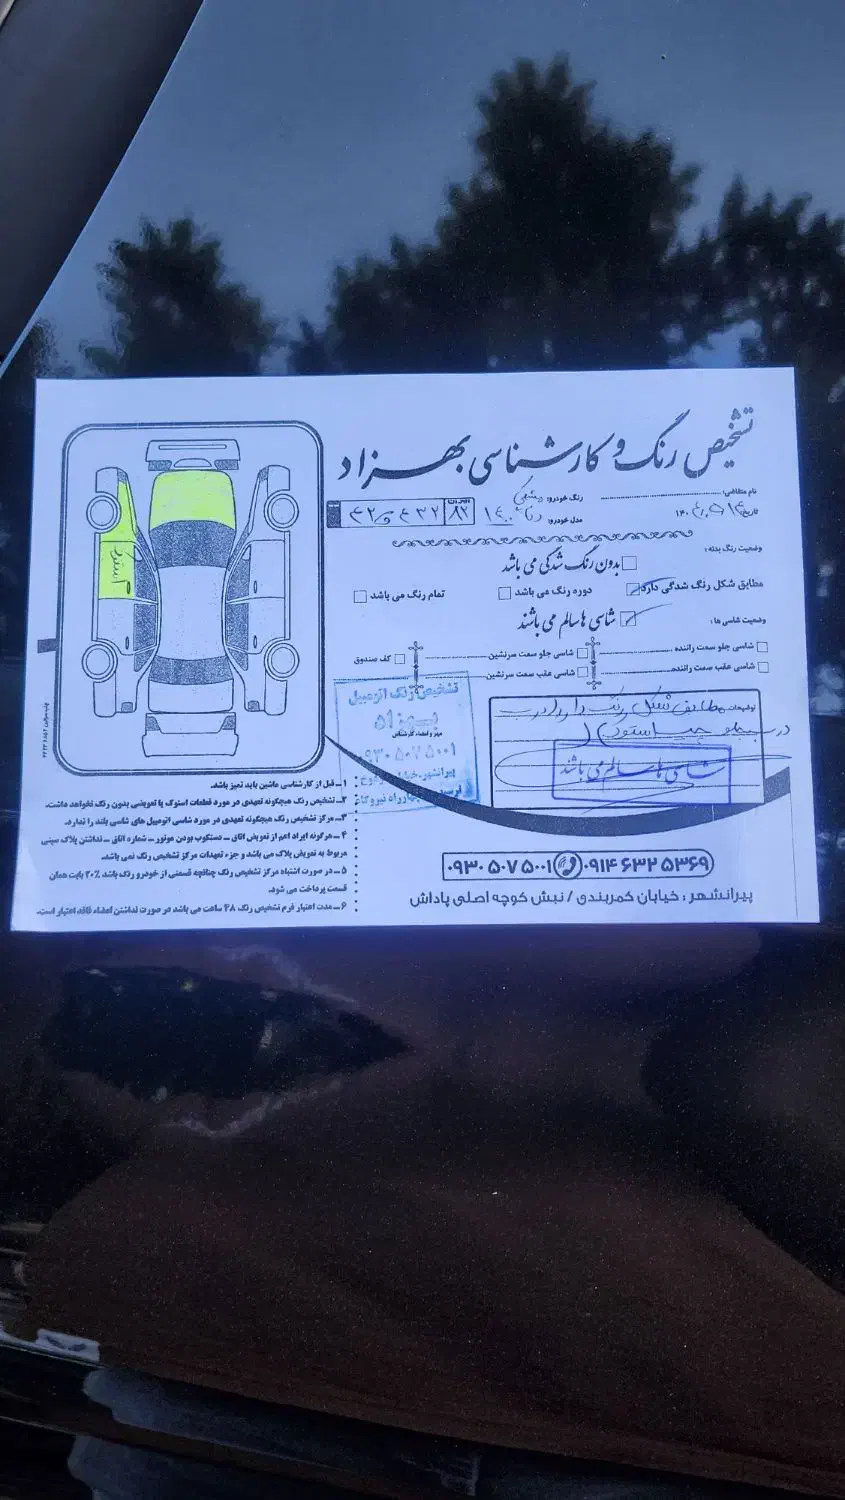 تشخیص رنگ و کارشناسی بهزاد
نام متقاضی:
رنگ خودرو: مشکی
تاریخ:
مدل خودرو:
ایران
۸۲
وضعیت رنگ بدنه:
بدون رنگ شدگی می باشد
مطابق شکل رنگ شدگی دارد
دوره رنگ می باشد
تمام رنگ می باشد
وضعیت شاسی ها:
شاسی ها سالم می باشند
شاسی جلو سمت راننده
شاسی جلو سمت سرنشین
کف صندوق
شاسی عقب سمت راننده
شاسی عقب سمت سرنشین
توضیحات: مطابق شکل رنگ دارد درب
درب جلو چپ استوک
شاسی ها سالم می باشد
تشخیص رنگ اتومبیل
بهزاد
مهر و امضاء کارشناس
۰۹۳۰۵۰۷۵۰۰۱
استوک
۱ــ قبل از کارشناسی ماشین باید تمیز باشد.
۲ــ تشخیص رنگ هیچگونه تعهدی در مورد قطعات استوک یا تعویضی بدون رنگ نخواهد داشت.
۳ــ مرکز تشخیص رنگ هیچگونه تعهدی در مورد شاسی اتومبیل های شاسی بلند را ندارد.
۴ــ هرگونه ایراد اعم از تعویض اتاق ــ دستکوب بودن موتور ــ شماره اتاق ــ نداشتن پلاک سینی
مربوط به تعویض پلاک می باشد و جزء تعهدات مرکز تشخیص رنگ نمی باشد.
۵ــ در صورت اشتباه مرکز تشخیص رنگ چنانچه قسمتی از خودرو رنگ باشد ۲۰٪ بابت همان
قسمت پرداخت می شود.
۶ــ مدت اعتبار فرم تشخیص رنگ ۴۸ ساعت می باشد در صورت نداشتن امضاء فاقد اعتبار است.
۰۹۱۴۶۳۲۵۳۶۹ ۰۹۳۰۵۰۷۵۰۰۱
پیرانشهر : خیابان کمربندی / نبش کوچه اصلی پاداش